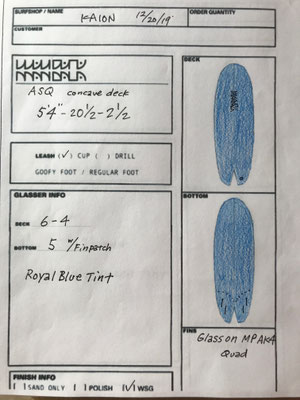 SURFSHOP / NAME KAION 12/20/19' ORDER QUANTITY
CUSTOMER
MANDALA
ASQ concave deck
5'4" - 20 1/2 - 2 1/2
LEASH (✓) CUP ( ) DRILL
GOOFY FOOT / REGULAR FOOT
GLASSER INFO
DECK 6-4
BOTTOM 5 w/Finpatch
Royal Blue Tint
FINISH INFO
( ) SAND ONLY ( ) POLISH (✓) WSG
DECK
BOTTOM
FINS
Glass on MP AK4
Quad